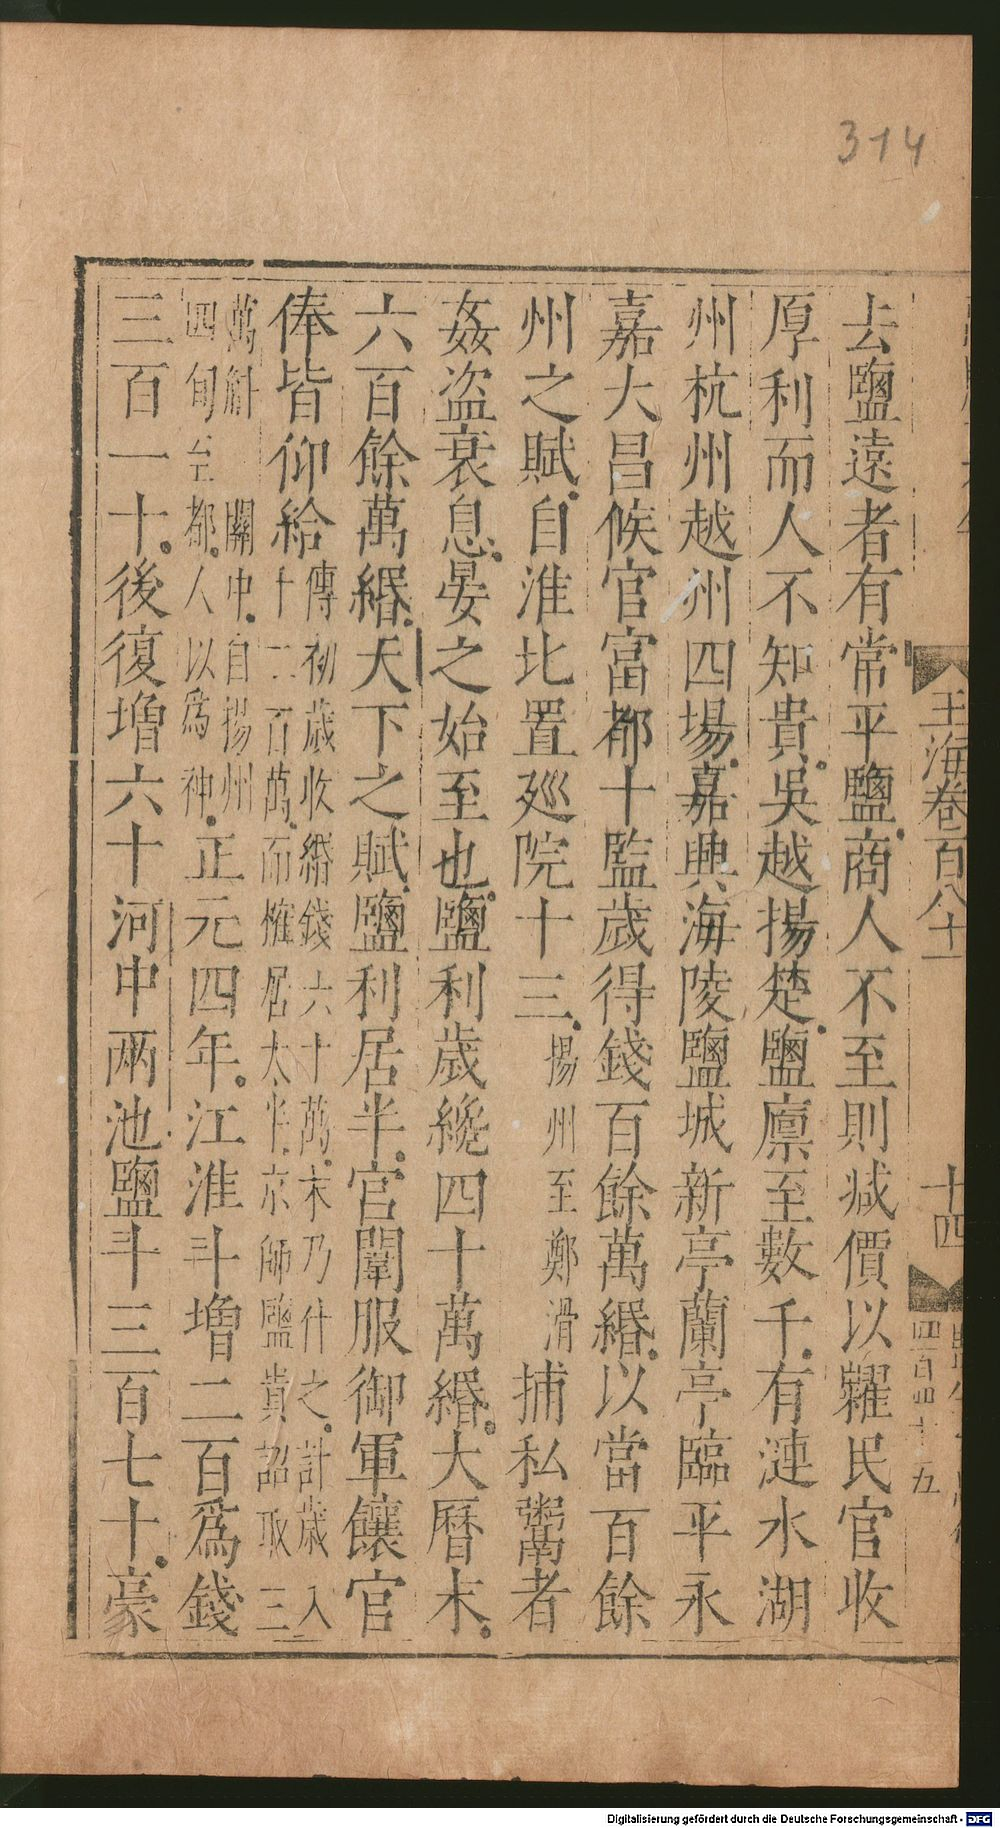 314
玉海卷百八十一
十四
四百四十五
去鹽遠者有常平鹽商人不至則減價以糶民官收
厚利而人不知貴吳越揚楚鹽廪至數千有漣水湖
州杭州越州四場嘉興海陵鹽城新亭蘭亭臨平永
嘉大昌候官富都十監歲得錢百餘萬緡以當百餘
州之賦自淮北置廵院十三揚州至鄭滑捕私鬻者
姦盜衰息晏之始至也鹽利歲纔四十萬緡大曆末
六百餘萬緡天下之賦鹽利居半宫闈服御軍饟官
俸皆仰給傳初歲收緡錢六十萬末乃什之計歲入
十二百萬而榷居太半京師鹽貴詔取三
萬斛關中自揚州
四旬至都人以爲神正元四年江淮斗增二百爲錢
三百一十後復增六十河中兩池鹽斗三百七十豪
Digitalisierung gefördert durch die Deutsche Forschungsgemeinschaft - DFG